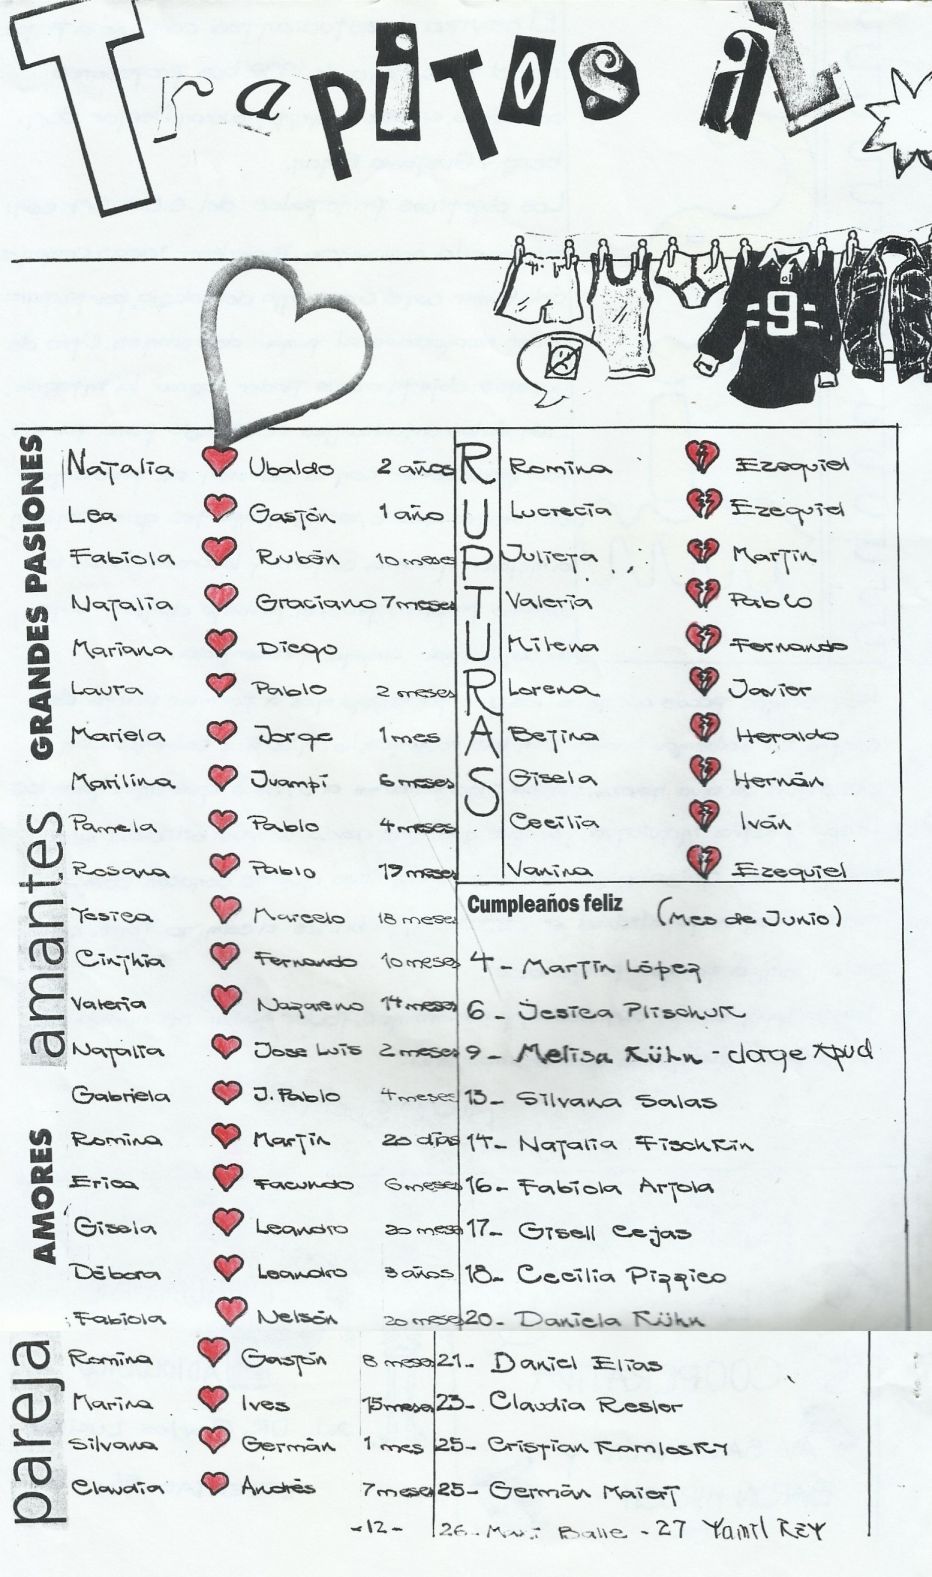 Trapitos al
9
GRANDES PASIONES
amantes
AMORES
pareja
Natalia Ubaldo 2 años
Lea Gastón 1 año
Fabiola Rubén 10 meses
Natalia Graciano 7 meses
Mariana Diego
Laura Pablo 2 meses
Mariela Jorge 1 mes
Marilina Juampi 6 meses
Pamela Pablo 4 meses
Rosana Pablo 19 meses
Yesica Marcelo 18 meses
Cinthia Fernando 10 meses
Valeria Nazareno 14 meses
Natalia Jose Luis 2 meses
Gabriela J. Pablo 4 meses
Romina Martín 20 días
Erica Facundo 6 meses
Gisela Leandro 20 meses
Débora Leandro 3 años
Fabiola Nelsón 20 meses
Romina Gastón 8 meses
Marina Ives 15 meses
Silvana Germán 1 mes
Claudia Andrés 7 meses
-12-
RUPTURAS
Romina Ezequiel
Lucrecia Ezequiel
Julieta Martín
Valeria Pablo
Milena Fernando
Lorena Javier
Betina Heraldo
Gisela Hernán
Cecilia Iván
Vanina Ezequiel
Cumpleaños feliz (Mes de Junio)
4- Martín López
6- Jesica Plischuk
9- Melisa Kühn - Jorge Xpud
13- Silvana Salas
14- Natalia Fischkin
16- Fabiola Artola
17- Gisell Cejas
18- Cecilia Pizzico
20- Daniela Kühn
21- Daniel Elias
23- Claudia Resler
25- Cristian Kamlosky
25- Germán Maiert
26- Balle - 27 Yamil Rey